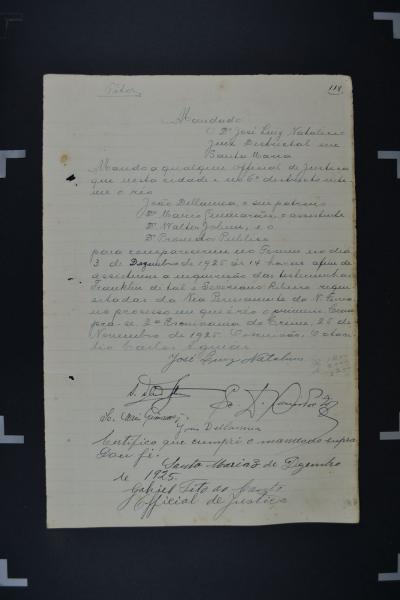 118
Mandado
O Dr. José Luiz Natalicio
Juiz Districtal em
Santa Maria
Mando a qualquer official de Justiça
que nesta cidade e no 6º districto inti-
me o réo
João Dellamea, e seu patrono
Dr. Marco, o assistente
Dr. Walter Jobim, e o
Dr. Promotor Publico
para comparecerem no Forum no dia
3 de Dezembro de 1925 ás 14 horas afim de
assistirem a inquirição das testemunhas
Franklin de tal e Severiano Ribeiro requi-
sitadas da Via Permanente da V. Ferrea
no processo em que é réo o primeiro. Cum-
pra-se. Escrivania do Crime, 25 de
Novembro de 1925. Escrivão, Octa-
vio Carlos
José Luiz Natalicio
João Dellamea
Certifico que cumpri o mandado supra
Dou fé.
Santa Maria 3 de Dezembro
de 1925.
Gabriel Tito do Canto
Official de Justiça